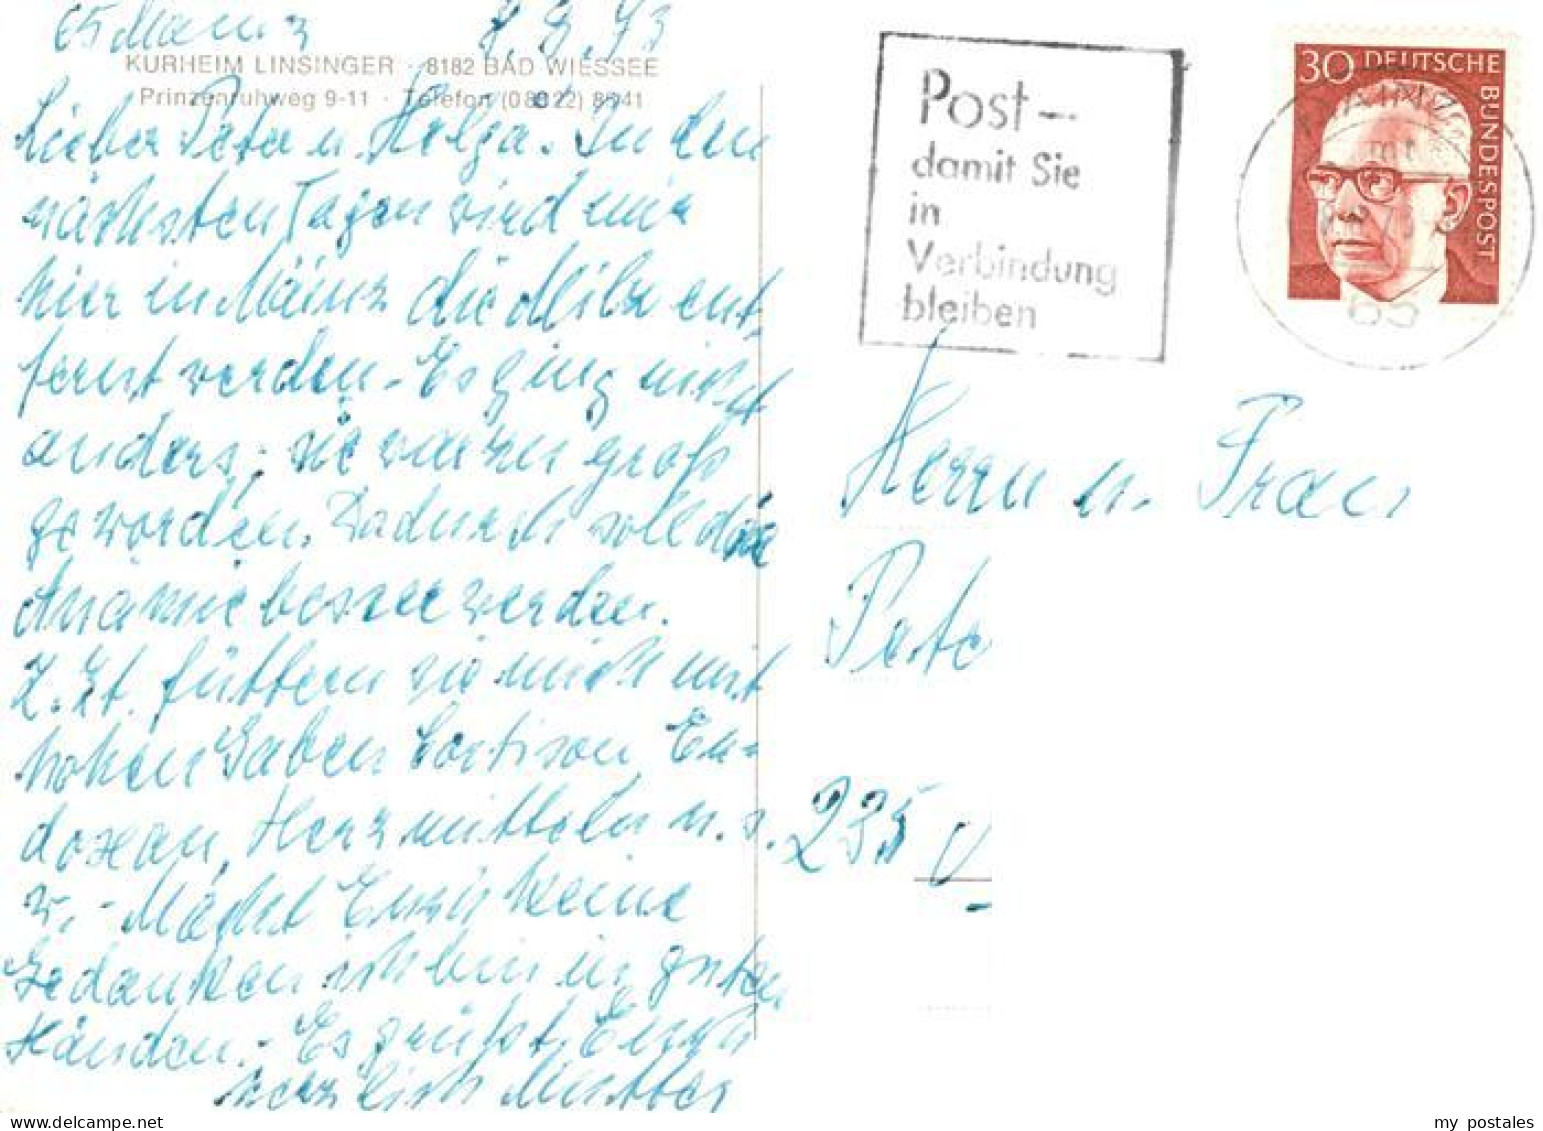 65 Mainz 7.3.73
KURHEIM LINSINGER · 8182 BAD WIESSEE
Prinzenruhweg 9-11 · Telefon (08022) 8541
Lieber Peter u. Helga. In den
nächsten Tagen wird mir
hier in Mainz die Milz ent
fernt werden. Es ging nicht
anders, sie war zu groß
geworden. Dadurch soll die
Anämie besser werden.
Z. Zt. füttern sie mich mit
hohen Gaben Cortison, En-
doxan, Herzmitteln u. s.
w. - Macht Euch keine
Gedanken ich bin in guten
Händen. - Es grüßt Euch
herzlich Mutter
Post -
damit Sie
in
Verbindung
bleiben
30 DEUTSCHE
BUNDESPOST
MAINZ
65
Herrn u. Frau
Pete
235
my postales